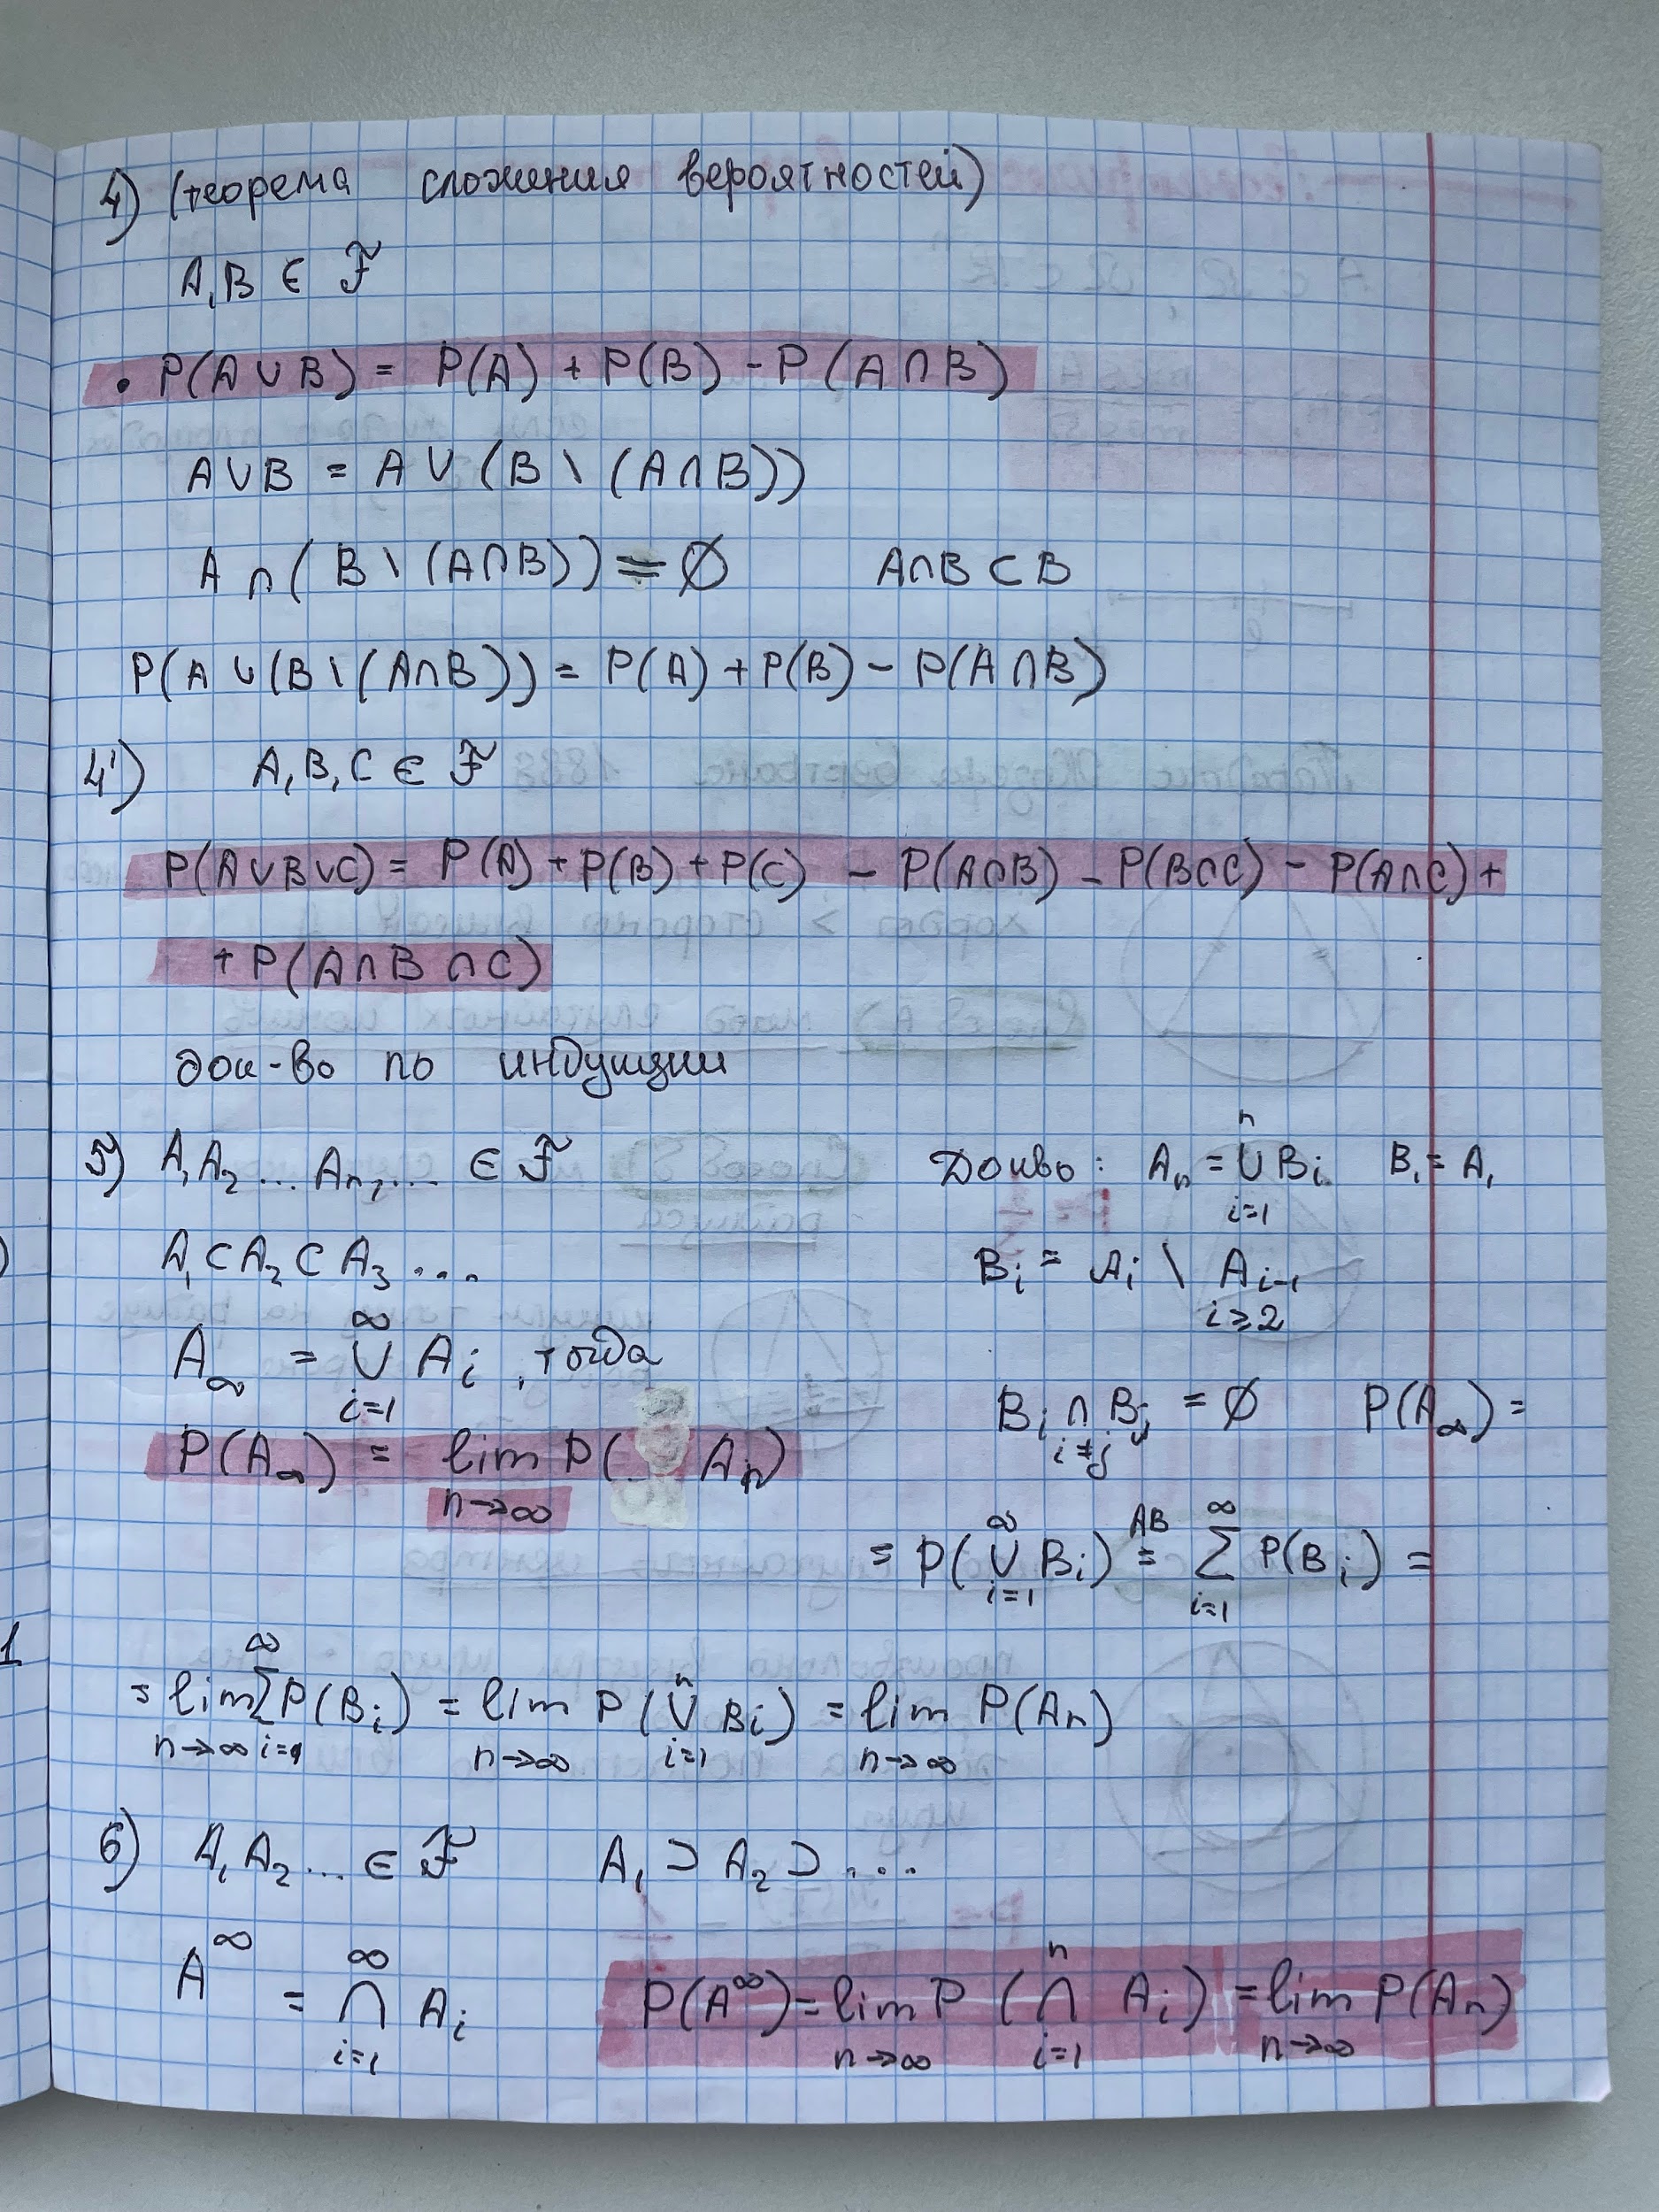 4) (теорема сложения вероятностей)
A, B ∈ ℱ
• P(A∪B) = P(A) + P(B) - P(A∩B)
A∪B = A ∪ (B \ (A∩B))
A ∩ (B \ (A∩B)) = ∅   A∩B ⊂ B
P(A ∪ (B \ (A∩B)) = P(A) + P(B) - P(A∩B)
4') A, B, C ∈ ℱ
P(A∪B∪C) = P(A) + P(B) + P(C) - P(A∩B) - P(B∩C) - P(A∩C) +
+ P(A∩B∩C)
док-во по индукции
5) A₁ A₂ ... Aₙ, ... ∈ ℱ
A₁ ⊂ A₂ ⊂ A₃ ...
A_∞ = ∪_{i=1}^{∞} A_i, тогда
P(A_∞) = lim_{n→∞} P( Aₙ)
Докво: Aₙ = ∪_{i=1}^{n} B_i   B₁ = A₁
B_i = A_i \ A_{i-1}
i ≥ 2
B_i ∩ B_j = ∅   P(A_∞) =
i ≠ j
= P(∪_{i=1}^{∞} B_i) =^{AB} ∑_{i=1}^{∞} P(B_i) =
= lim_{n→∞} ∑_{i=1}^{∞} P(B_i) = lim_{n→∞} P(∪_{i=1}^{n} B_i) = lim_{n→∞} P(Aₙ)
6) A₁ A₂ ... ∈ ℱ   A₁ ⊃ A₂ ⊃ ...
A^∞ = ∩_{i=1}^{∞} A_i   P(A^∞) = lim_{n→∞} P(∩_{i=1}^{n} A_i) = lim_{n→∞} P(Aₙ)